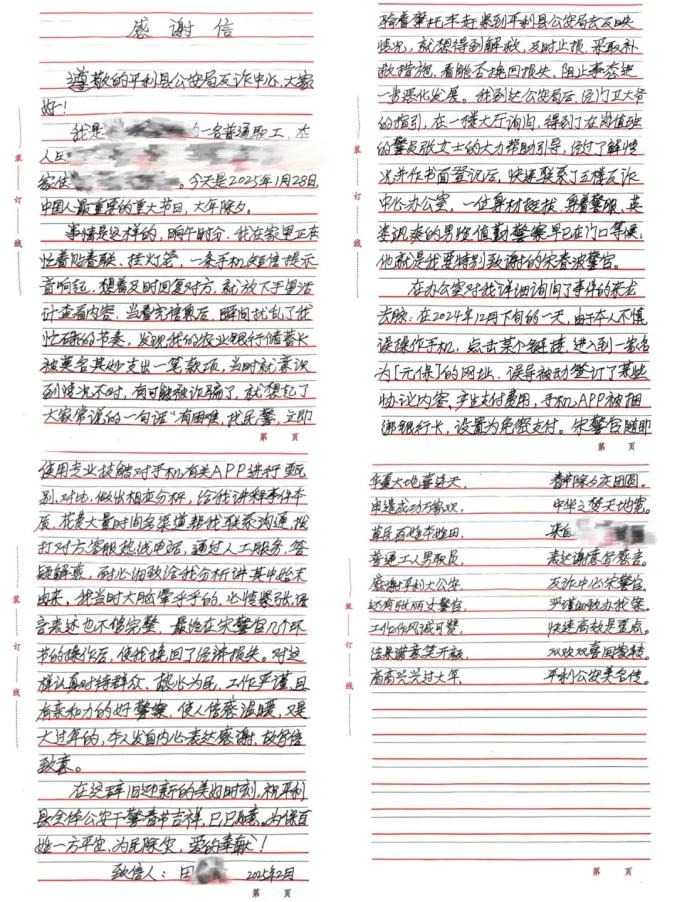 感谢信
尊敬的平利县公安局反诈中心,大家
好!
我是 的一名普通职工,本
人
家住 。今天是2025年1月28日,
中国人最重要的重大节日,大年除夕。
事情是这样的,晌午时分,我在家里正在
忙着贴春联、挂灯笼,一条手机短信提示
音响起,想着及时回复对方,就放下手里活
计查看内容,当看完信息后,瞬间扰乱了我
忙碌的节奏,发现我的农业银行储蓄卡
被莫名其妙支出一笔款项,当时就意识
到情况不对,有可能被诈骗了,就想起了
大家常说的一句话"有困难,找民警,立即
第 页
骑着摩托车赶紧到平利县公安局去反映
情况,就想得到解救,及时止损,采取补
救措施,看能否挽回损失,阻止事态进
一步恶化发展。我到达公安局后,经门卫大爷
的指引,在一楼大厅询问,得到了在岗值班
的警员张女士的大力帮助引导,经过了解情
况并作书面登记后,快速联系了五楼反诈
中心办公室,一位身材挺拔,身着警服,英
姿飒爽的男性值勤警察早已在门口等候,
他就是我要特别致谢的宋春波警官。
在办公室对我详细询问了事件的来龙
去脉:在2024年12月下旬的一天,由于本人不慎
误操作手机,点击某个链接,进入到一家名
为[元保]的网址,误导被动签订了某些
协议内容,产生支付费用,手机APP被捆
绑银行卡,设置为免密支付。宋警官随即
第 页
使用专业技能对手机有关APP进行甄
别、对比,做出相应分析,给我讲释事件本
质,花费大量时间多渠道帮我联系沟通,拨
打对方客服热线电话,通过人工服务,答
疑解惑,耐心细致给我分析讲其中始末
由来,我当时大脑晕乎乎的,心情紧张,语
言表述也不够完整,最终在宋警官几个环
节的操作后,使我挽回了经济损失。对这
样认真对待群众、热心为民,工作严谨,且
有亲和力的好警察,使人倍感温暖,又是
大过年的,本人发自内心表达感谢,故写信
致意。
在这辞旧迎新的美好时刻,祝平利
县全体公安干警春节吉祥,巳巳如意,为保百
姓一方平安,为民除灾,爱的奉献!
致信人:田 2025年2月
第 页
华夏大地喜连天, 春节除夕庆团圆。
申遗成功万家欢, 中华之梦天地宽。
草民百姓本姓田, 来自
普通工人男职员, 表达谢意写感言。
感谢平利大公安, 反诈中心宋警官。
还有张丽女警官, 严谨细致办我案。
工作作风诚可赞, 快速高效是重点。
结果满意笑开颜, 双双喜回家转。
高高兴兴过大年, 平利公安美名传。
第 页
装
订
线
装
订
线
装
订
线
装
订
线